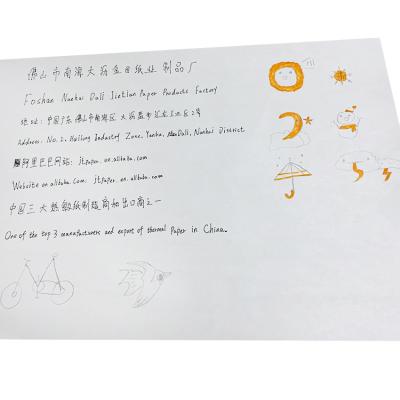 佛山市南海大沥金田纸业制品厂
Foshan Nanhai Dali Jintian Paper Products Factory
地址:中国广东佛山市南海区大沥盐步汇龙工业区2号
Address: No.2, Huilong Industry Zone, Yanbu, Dali, Nanhai District
阿里巴巴网站: jtpaper.en.alibaba.com
Website on alibaba.com: jtpaper.en.alibaba.com
中国三大热敏纸制造商和出口商之一
One of the top 3 manufacturers and export of thermal Paper in China.